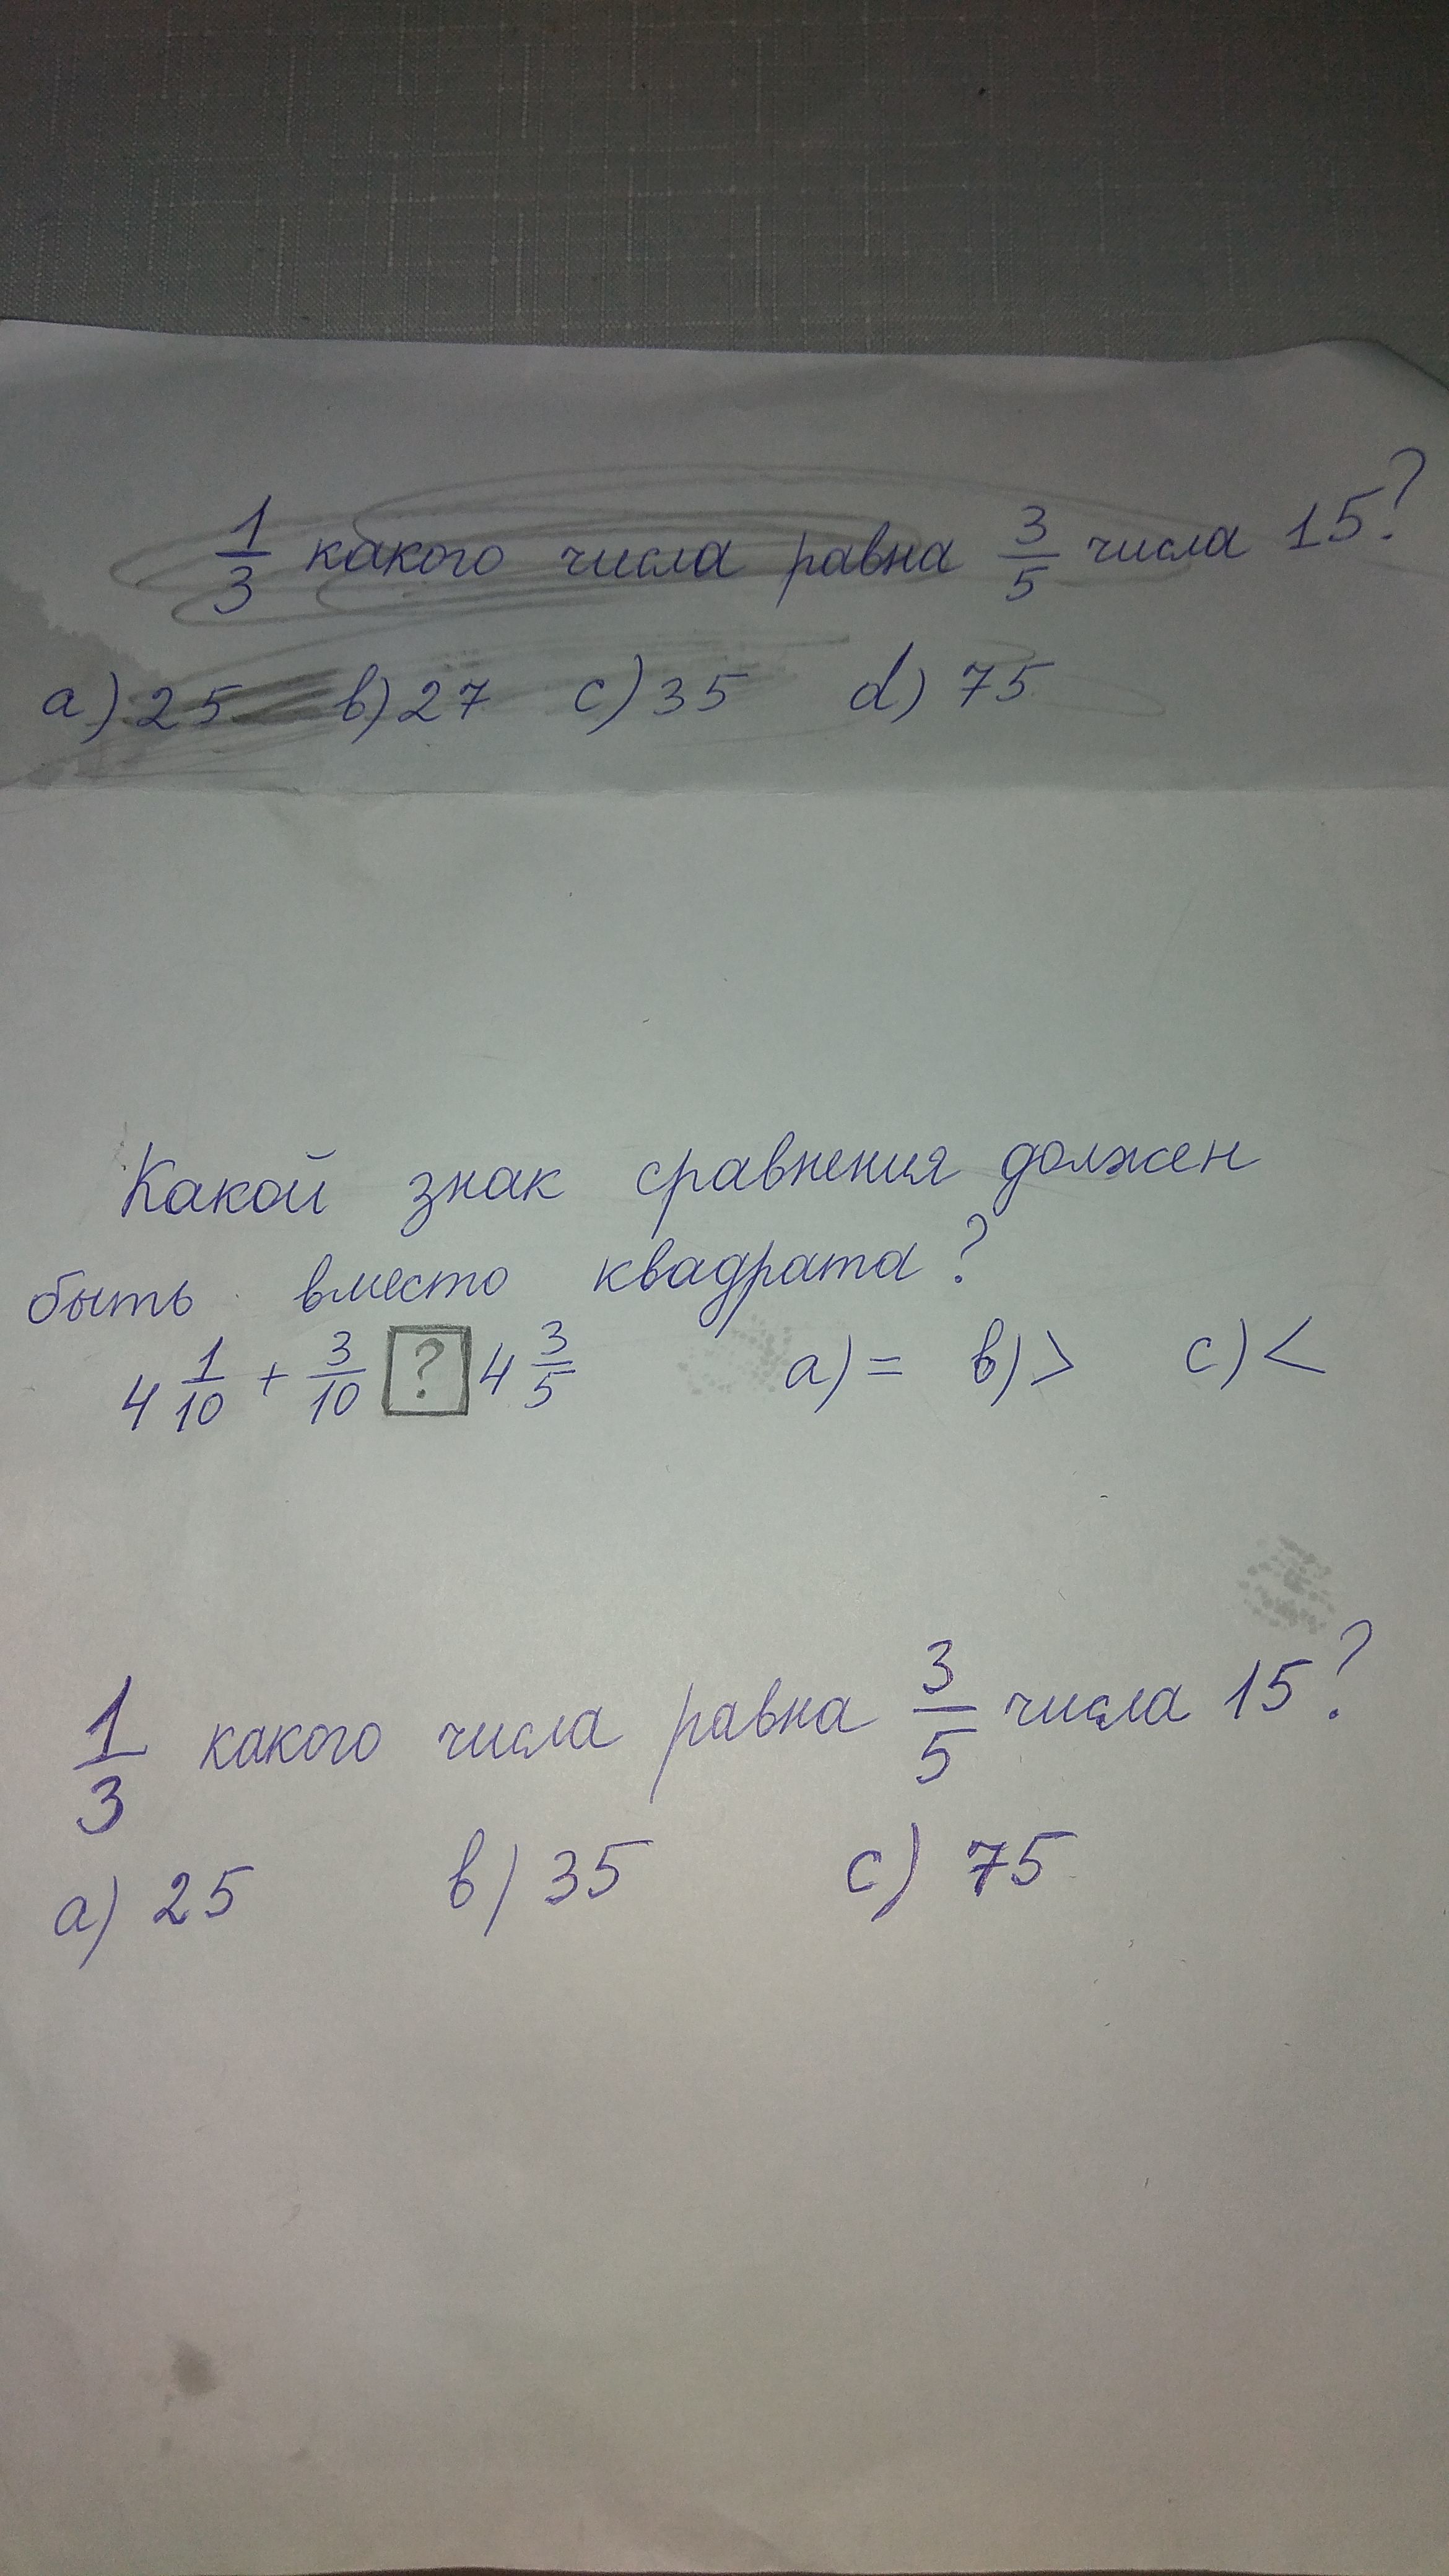 1/3 какого числа равна 3/5 числа 15?
a) 25 b) 27 c) 35 d) 75
Какой знак сравнения должен
быть вместо квадрата?
4 1/10 + 3/10 ? 4 3/5 a) = b) > c) <
1/3 какого числа равна 3/5 числа 15?
a) 25 b) 35 c) 75